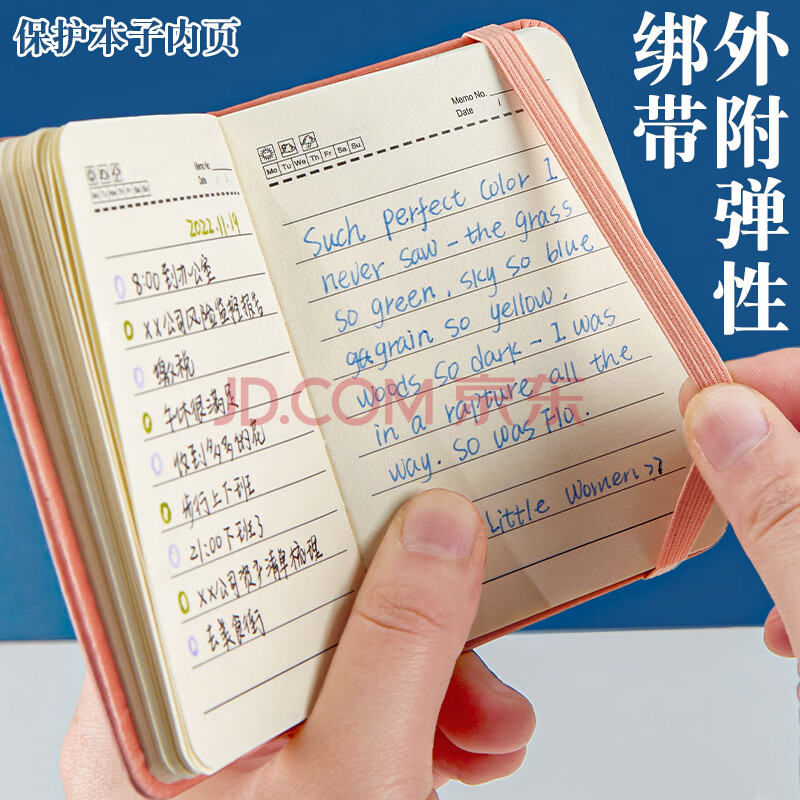 保护本子内页
外附弹性
绑带
Memo No.
Date /
2022.11.19
8:00到办公室
XX公司风险监控报告
缴税
午休很满足
收到多多的花
步行上下班
21:00下班了
XX公司资产清单梳理
去美食街
Memo No.
Date /
Mo Tu We Th Fr Sa Su
Such perfect color I
never saw - the grass
so green, sky so blue
grain so yellow,
woods so dark - I was
in a rapture all the
way. So was Flo.
Little Women>>
JD.COM 京东